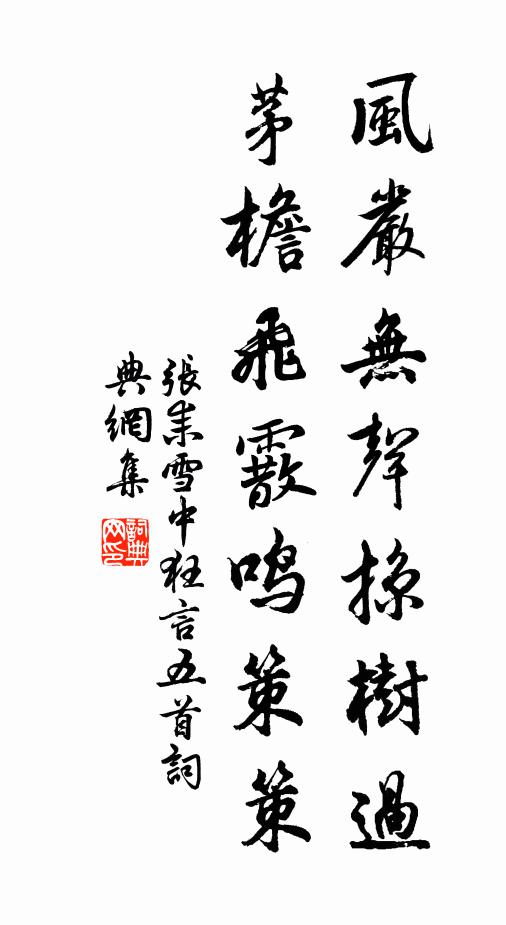 風嚴無聲掠樹過
茅檐飛霰鳴策策
張耒雪中狂言五首詞
典網集
詞典
网印